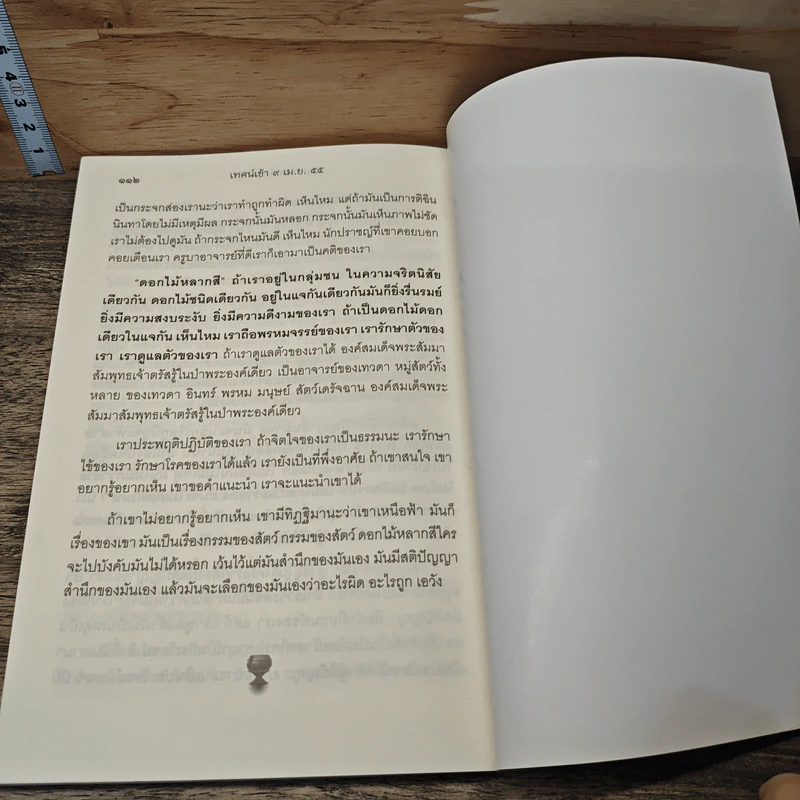 5
4
3
2
1
๑๑๒
เทศน์เช้า ๙ เม.ย. ๕๕
เป็นกระจกส่องเรานะว่าเราทำถูกทำผิด เห็นไหม แต่ถ้ามันเป็นการติฉิน
นินทาโดยไม่มีเหตุมีผล กระจกนั้นมันหลอก กระจกนั้นมันเห็นภาพไม่ชัด
เราไม่ต้องไปดูมัน ถ้ากระจกไหนมันดี เห็นไหม นักปราชญ์ที่เขาคอยบอก
คอยเตือนเรา ครูบาอาจารย์ที่ดีเราก็เอามาเป็นคติของเรา
“ดอกไม้หลากสี” ถ้าเราอยู่ในกลุ่มชน ในความจริตนิสัย
เดียวกัน ดอกไม้ชนิดเดียวกัน อยู่ในแจกันเดียวกันมันก็ยิ่งรื่นรมย์
ยิ่งมีความสงบระงับ ยิ่งมีความดีงามของเรา ถ้าเป็นดอกไม้ดอก
เดียวในแจกัน เห็นไหม เราถือพรหมจรรย์ของเรา เรารักษาตัวของ
เรา เราดูแลตัวของเรา ถ้าเราดูแลตัวของเราได้ องค์สมเด็จพระสัมมา
สัมพุทธเจ้าตรัสรู้ในป่าพระองค์เดียว เป็นอาจารย์ของเทวดา หมู่สัตว์ทั้ง
หลาย ของเทวดา อินทร์ พรหม มนุษย์ สัตว์เดรัจฉาน องค์สมเด็จพระ
สัมมาสัมพุทธเจ้าตรัสรู้ในป่าพระองค์เดียว
เราประพฤติปฏิบัติของเรา ถ้าจิตใจของเราเป็นธรรมนะ เรารักษา
ไข้ของเรา รักษาโรคของเราได้แล้ว เรายังเป็นที่พึ่งอาศัย ถ้าเขาสนใจ เขา
อยากรู้อยากเห็น เขาขอคำแนะนำ เราจะแนะนำเขาได้
ถ้าเขาไม่อยากรู้อยากเห็น เขามีทิฏฐิมานะว่าเขาเหนือฟ้า มันก็
เรื่องของเขา มันเป็นเรื่องกรรมของสัตว์ กรรมของสัตว์ ดอกไม้หลากสีใคร
จะไปบังคับมันไม่ได้หรอก เว้นไว้แต่มันสำนึกของมันเอง มันมีสติปัญญา
สำนึกของมันเอง แล้วมันจะเลือกของมันเองว่าอะไรผิด อะไรถูก เอวัง